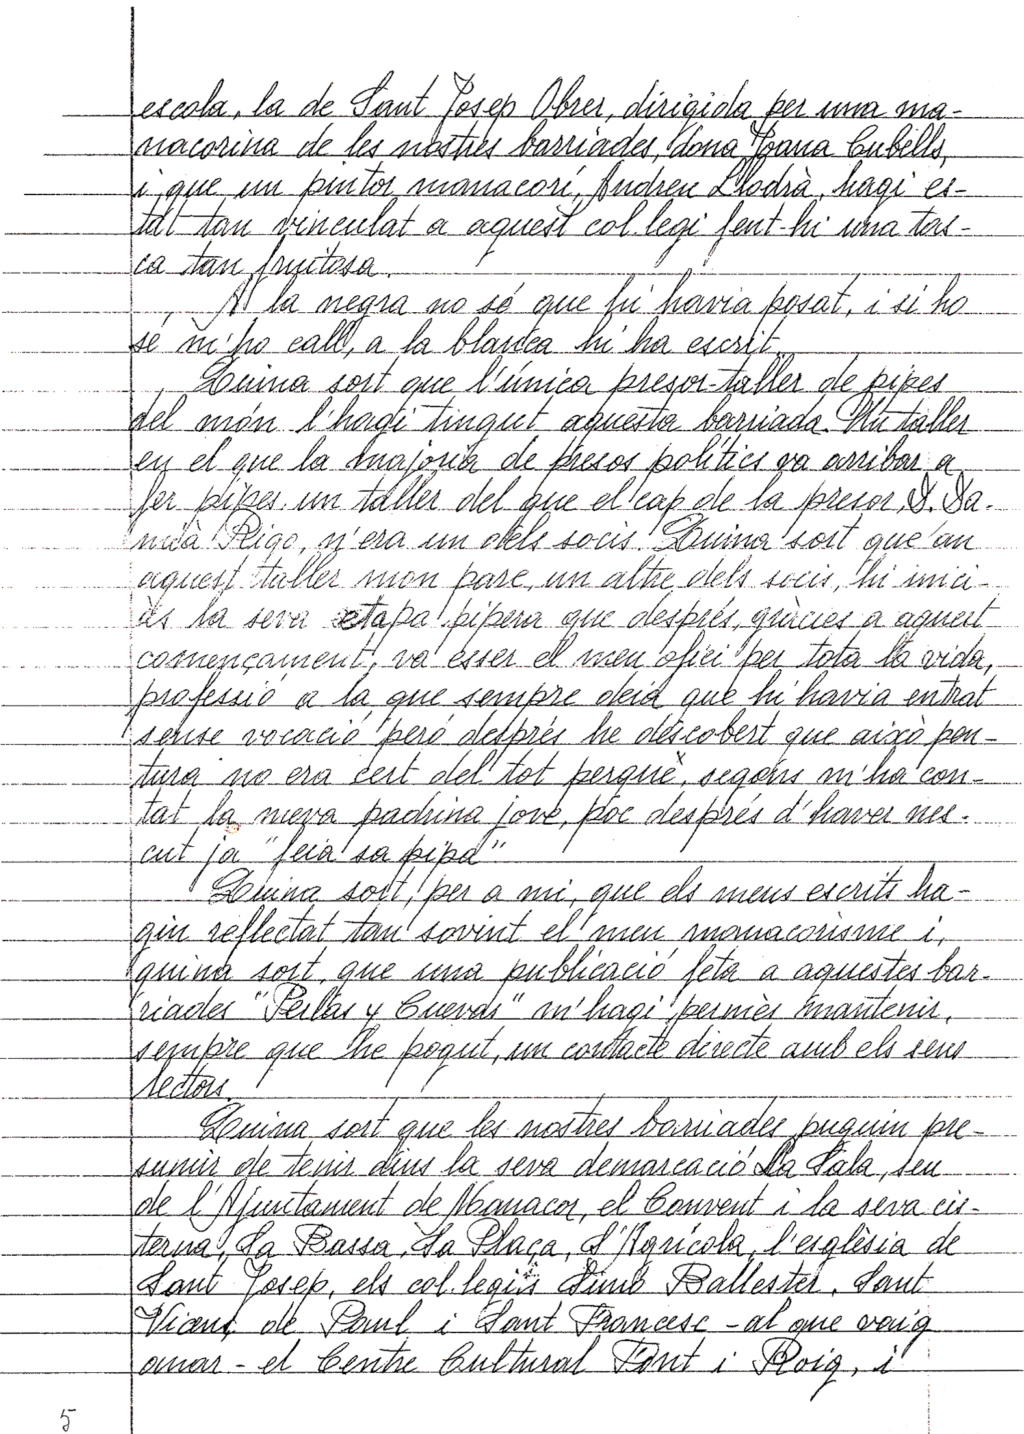 escola, la de Sant Josep Obrer, dirigida per una ma-
nacorina de les nostres barriades, dona Joana Cubells,
i que un pintor manacorí, Andreu Llodrà, hagi es-
tat tan vinculat a aquest col.legi fent-hi una tas-
ca tan fruitosa.
A la negra no sé que hi havia posat, i si ho
sé m'ho call, a la blanca hi ha escrit.
Quina sort que l'única presor-taller de pipes
del món l'hagi tingut aquesta barriada. Un taller
en el que la majoria de presos polítics va arribar a
fer pipes, un taller del que el cap de la presor, D. Da-
mià Rigo, n'era un dels socis. Quina sort que an
aquest taller mon pare, un altre dels socis, hi inici-
às la seva etapa pipera que després, gràcies a aquest
començament, va esser el meu ofici per tota la vida,
professió a la que sempre deia que hi havia entrat
sense vocació però després he descobert que això pen-
tura no era cert del tot perquè, segons m'ha con-
tat la meva padrina jove, poc després d'haver nes-
cut ja "feia sa pipa"
Quina sort, per a mi, que els meus escrits ha-
gin reflectat tan sovint el meu manacorisme i,
quina sort, que una publicació feta a aquestes bar-
riades "Perlas y Cuevas" m'hagi permès mantenir,
sempre que he pogut, un contacte directe amb els seus
lectors.
Quina sort que les nostres barriades puguin pre-
sumir de tenir dins la seva demarcació La Sala, seu
de l'Ajuntament de Manacor, el Convent i la seva cis-
terna, Sa Bassa, Sa Plaça, S'Agrícola, l'esglèsia de
Sant Josep, els col.legis Simó Ballester, Sant
Vicenç de Paul i Sant Francesc - al que vaig
anar - el Centre Cultural Font i Roig, i
5